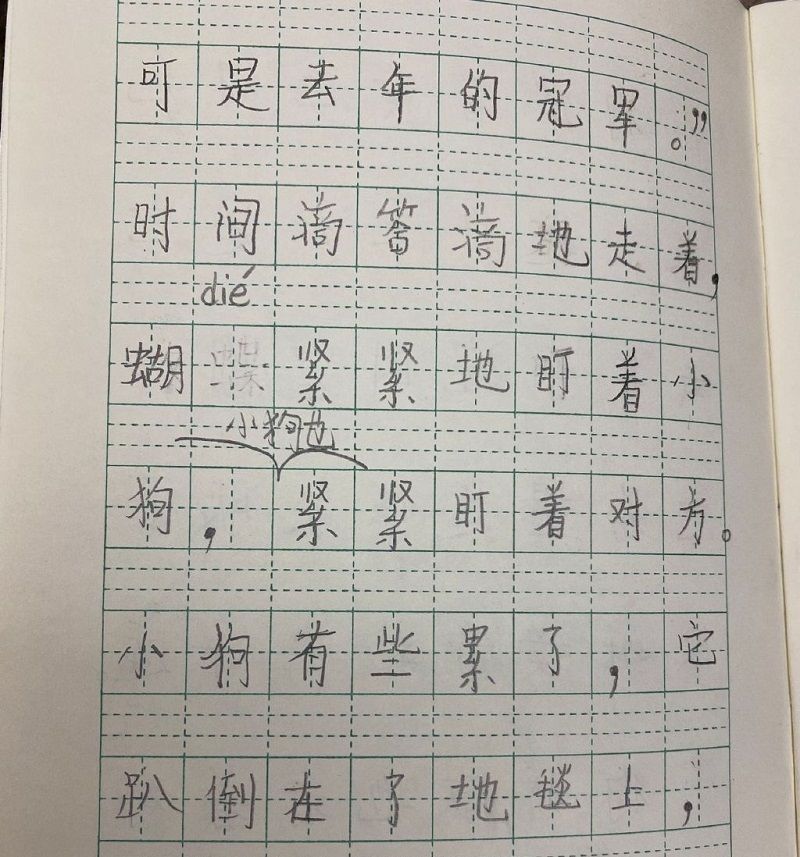 可是去年的冠军。”
时间滴答滴地走着,
dié
蝴蝶紧紧地盯着小
小狗也
狗,紧紧盯着对方。
小狗有些累了,它
趴倒在了地毯上,